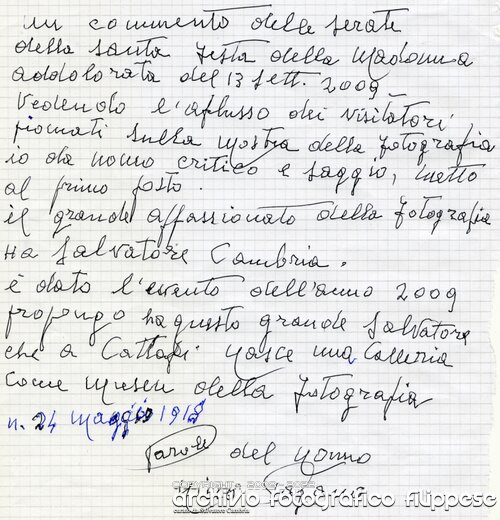 un commento della serate
della santa festa della Madonna
addolorata del 13 sett. 2009
vedendo l'aflusso dei visitatori,
piomati sulla mostra della fotografia
io da nonno critico e saggio, metto
al primo posto.
il grande appassionato della fotografia
Ha Salvatore Cambria.
è dato l'evento dell'anno 2009
propongo ha questo grande Salvatore
che a Cattafi nasce una Galleria
come museu della fotografia
n. 24 Maggio 1912
Parole del nonno
COPYRIGHT 2009-2022
archivio fotografico filippese
curato da Salvatore Cambria